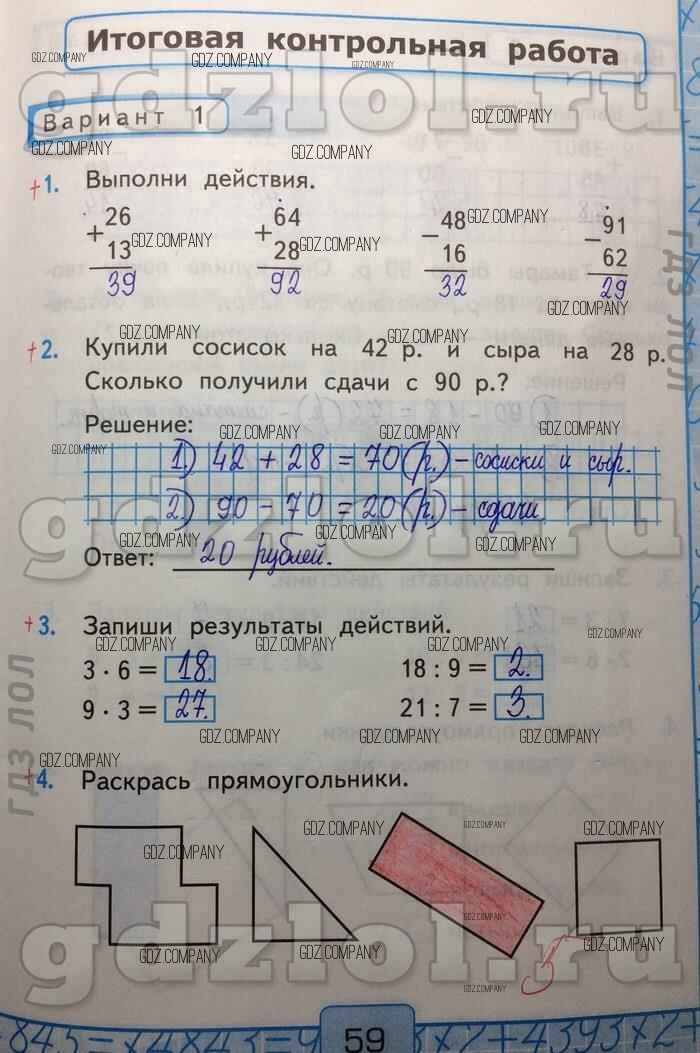 Итоговая контрольная работа
Вариант 1
+1. Выполни действия.
+ 26 + 64 − 48 − 91
13 28 16 62
39 92 32 29
+2. Купили сосисок на 42 р. и сыра на 28 р.
Сколько получили сдачи с 90 р.?
Решение:
1) 42 + 28 = 70 (р.) – сосиски и сыр.
2) 90 – 70 = 20 (р.) – сдачи
Ответ: 20 рублей.
+3. Запиши результаты действий.
3 · 6 = 18. 18 : 9 = 2.
9 · 3 = 27. 21 : 7 = 3.
+4. Раскрась прямоугольники.
5
59
gdzlol.ru
gdzlol.ru
gdzlol.ru
ГДЗ ЛОЛ
ГДЗ ЛОЛ
GDZ.COMPANY